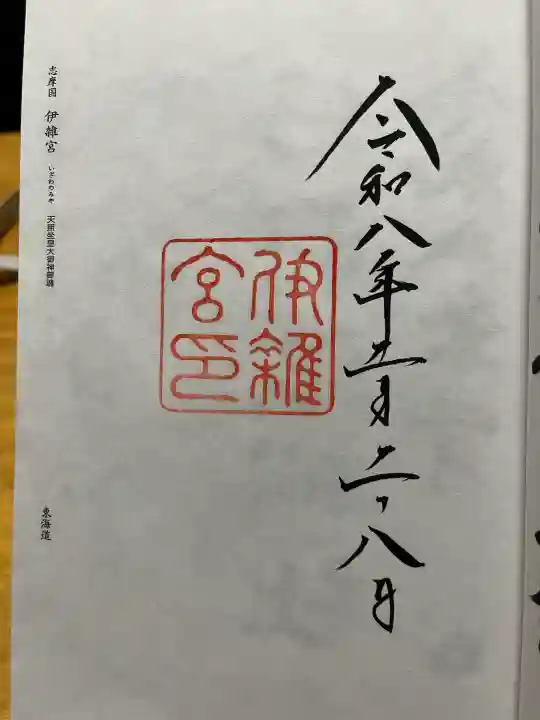 令和八年五月二十八日
伊雜
宮印
志摩国 伊雜宮 いざわのみや 天照坐皇大御神御魂
東海道